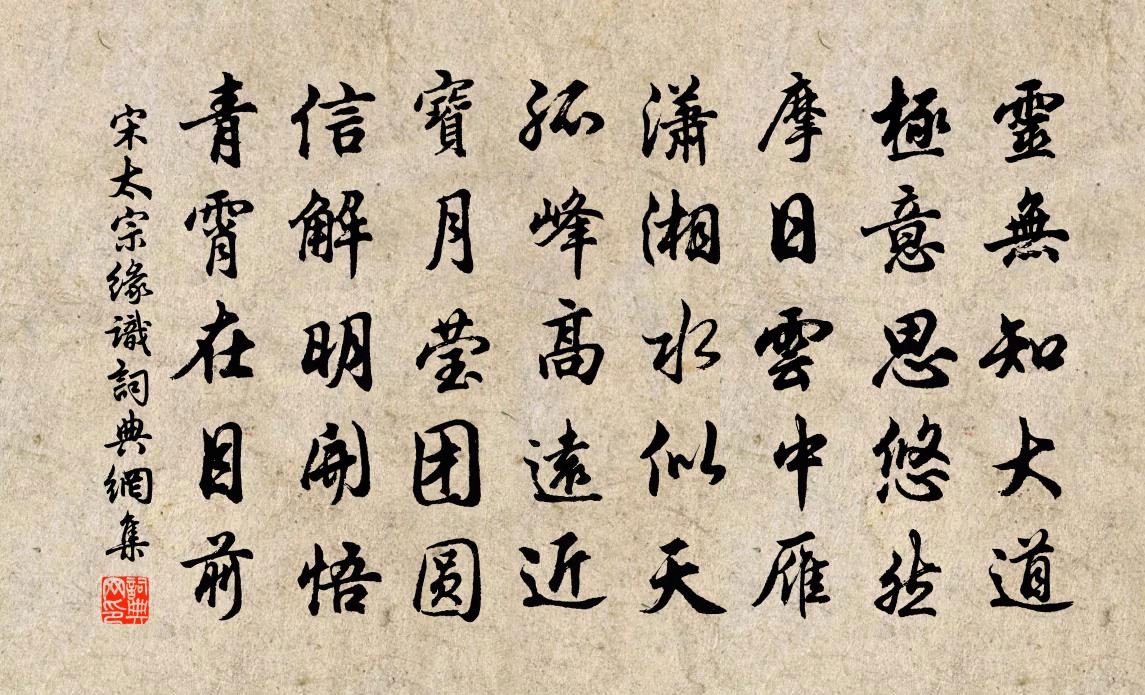 靈無知大道
極意思悠然
摩日雲中雁
瀟湘水似天
孤峰高遠近
寶月莹团圆
信解明開悟
青霄在目前
宋太宗緣識詞典網集
詞典网印